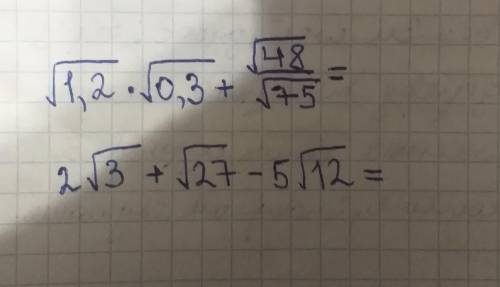 √1,2 · √0,3 + √48/√75 =
2√3 + √27 - 5√12 =